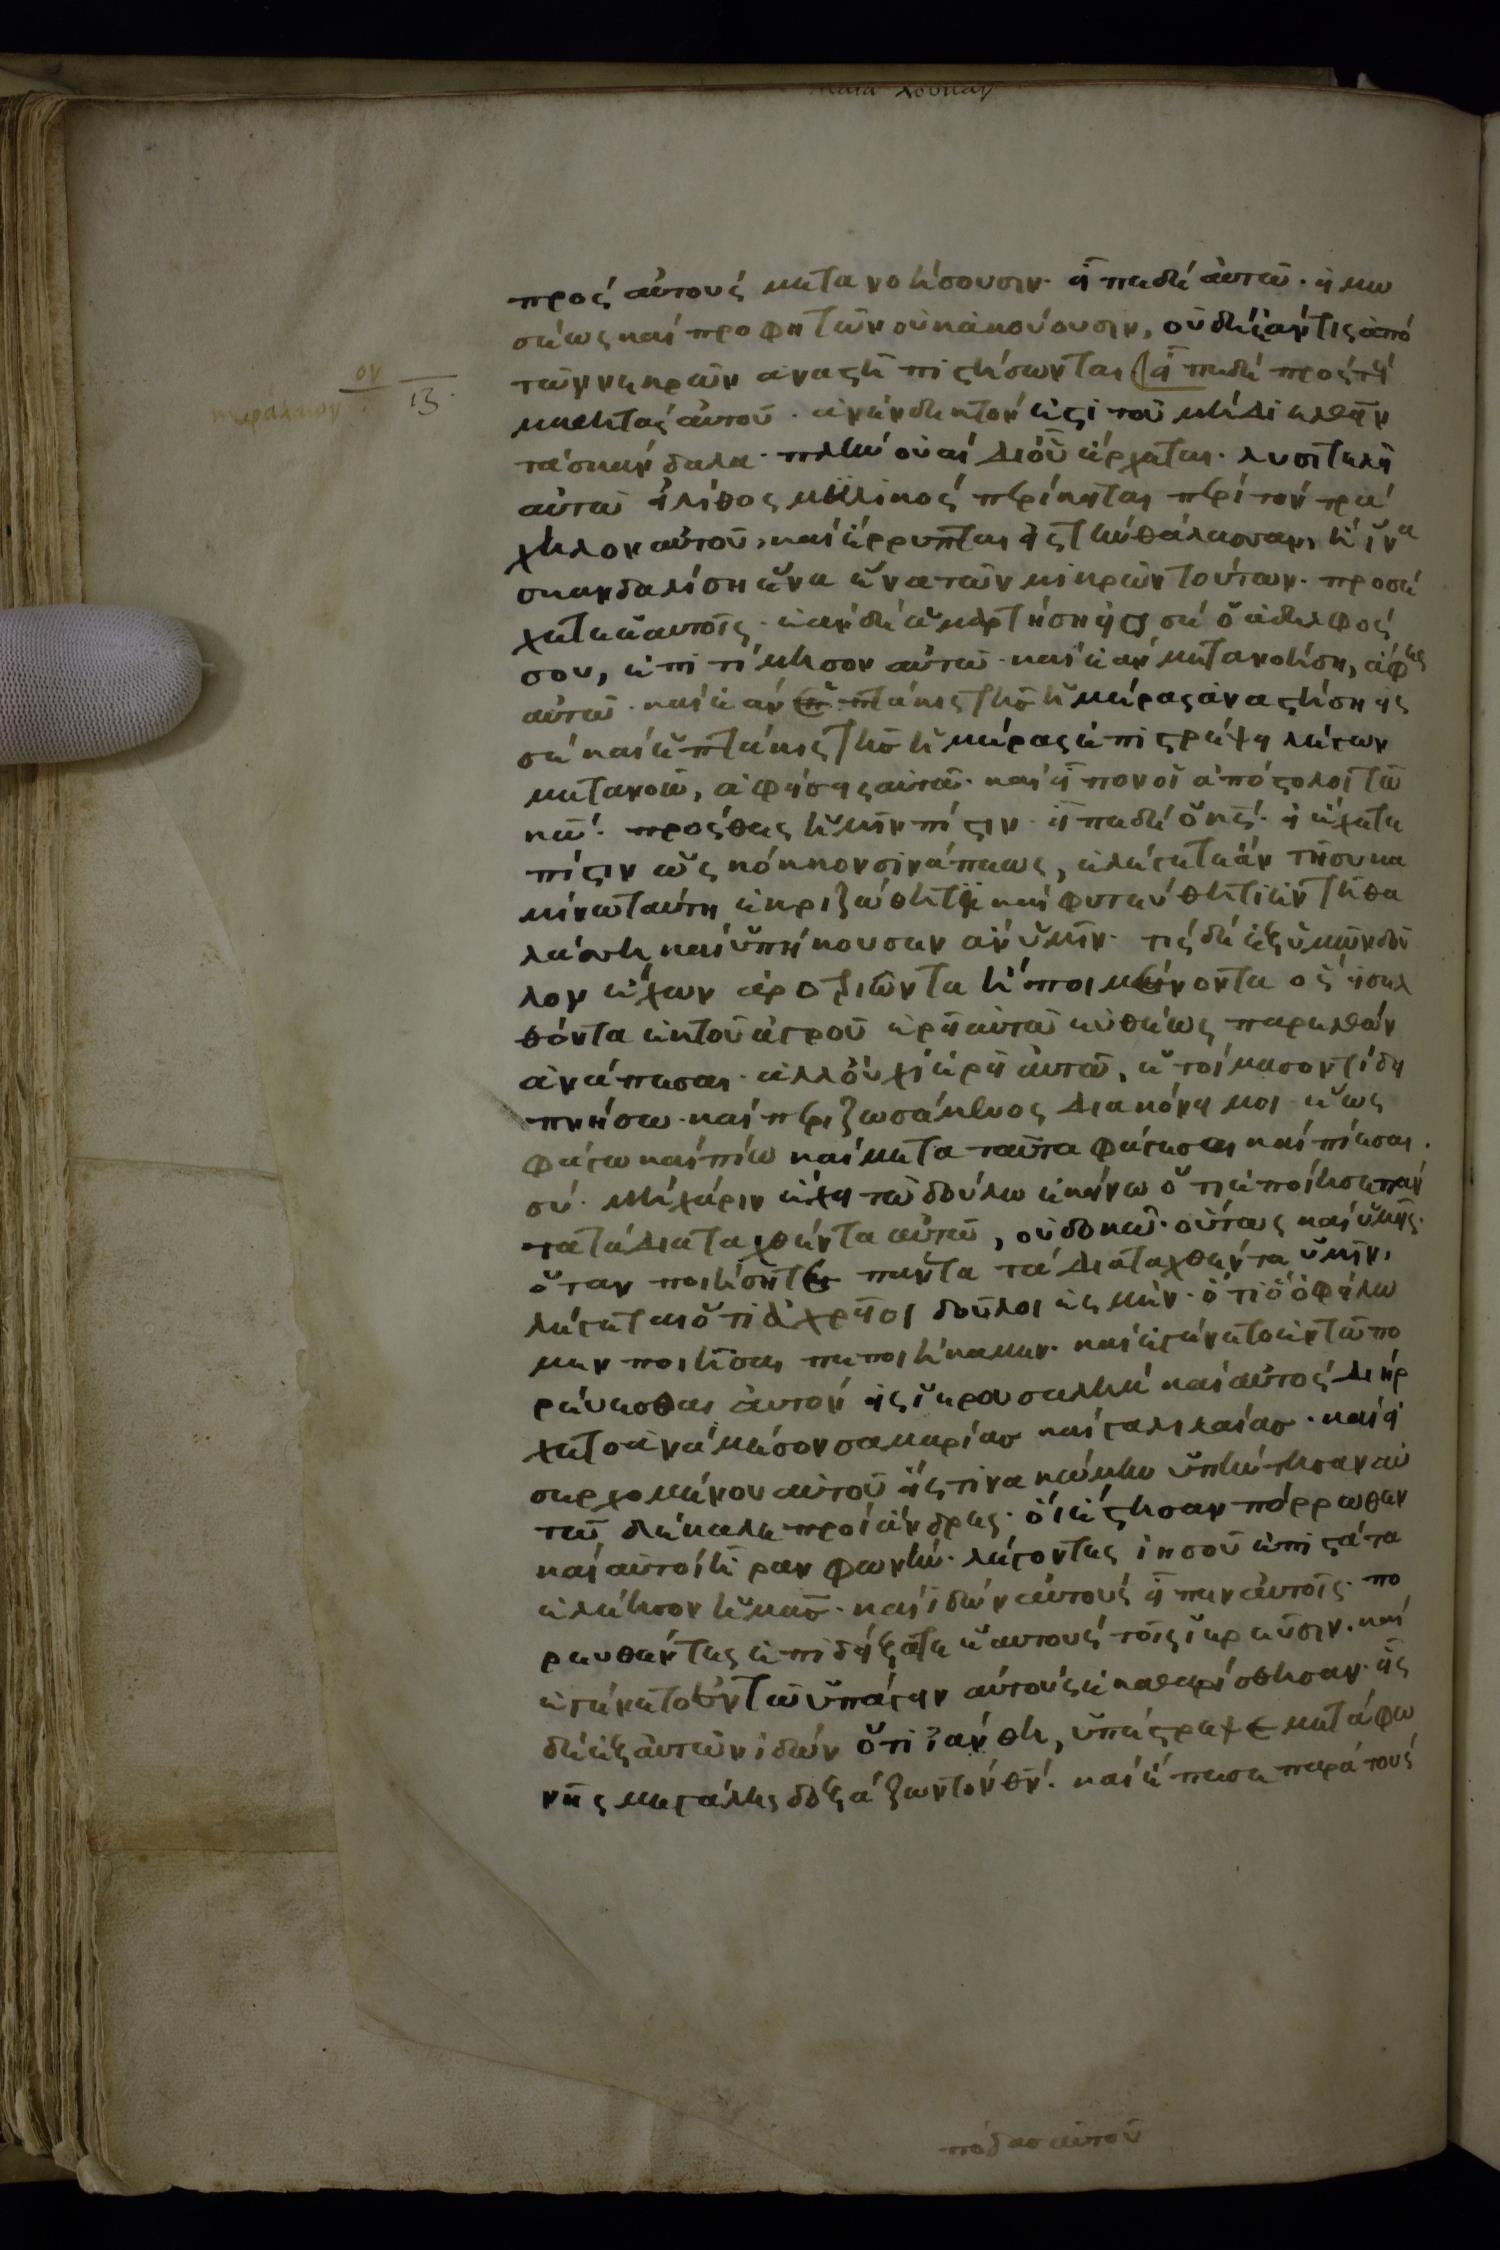 κατα λουκαν
πρὸς αὐτοὺς μετανοήσουσιν· εἶπε δὲ αὐτῶ· εἰ μω
σέως καὶ προφητῶν οὐκ ἀκούουσιν, οὐδὲ ἐάν τις ἀπὸ
τῶν νεκρῶν ἀναστῆ πιστήσωνται εἶπε δὲ πρὸς τοὺ
ον
κεφάλαιον ιζ·
μαθητὰς αὐτοῦ· ἀνένδεκτόν ἐστι τοῦ μὴ διελθεῖν
τὰ σκάνδαλα· πλὴν οὐαὶ δι οὗ ἔρχεται· λυσιτελεῖ
αὐτῶ εἰ λίθος μυλικὸς περίκειται περὶ τὸν τρά
χηλον αὐτοῦ, καὶ ἔρρυπται εἰς τὴν θάλασσαν, ἢ ἵνα
σκανδαλίση ἕνα ἕνα τῶν μικρῶν τούτων· προσέ
χετε ἑαυτοῖς· ἐὰν δὲ ἁμαρτήση εἰς σὲ ὁ ἀδελφός
σου, ἐπιτίμησον αὐτῶ· καὶ ἐὰν μετανοήση, ἄφες
αὐτῶ· καὶ ἐὰν ἑπτάκις τῆς ἡμέρας ἀναστήση εἰς
σὲ καὶ ἑπτάκις τῆς ἡμέρας ἐπιστρέψη λέγων
μετανοῶ, ἀφήσεις αὐτῶ· καὶ εἶπον οἱ ἀπόστολοι τῶ
κῶ· πρόσθες ἡμῖν πίστιν· εἶπε δὲ ὁ κς· εἰ ἔχετε
πίστιν ὡς κόκκον σινάπεως, ἐλέγετε ἂν τῆ συκα
μίνω ταύτη ἐκριζώθητι καὶ φυτεύθητι ἐν τῆ θα
λάσση καὶ ὑπήκουσεν ἂν ὑμῖν· τίς δὲ ἐξ ὑμῶν δοῦ
λον ἔχων ἀροτριῶντα ἢ ποιμαίνοντα ὃς εἰσελ
θόντα ἐκ τοῦ ἀγροῦ ἐρεῖ αὐτῶ εὐθέως παρελθὼν
ἀνάπεσαι· ἀλλ οὐχὶ ἐρεῖ αὐτῶ, ἑτοίμασον τί δει
πνήσω· καὶ περιζωσάμενος διακόνει μοι ἕως
φάγω καὶ πίω καὶ μετὰ ταῦτα φάγεσαι καὶ πίεσαι
σύ· μὴ χάριν ἔχει τῶ δούλω ἐκείνω ὅτι ἐποίησε πάν
τα τὰ διαταχθέντα αὐτῶ, οὐ δοκῶ· οὕτως καὶ ὑμεῖς·
ὅταν ποιήσητε πάντα τὰ διαταχθέντα ὑμῖν,
λέγεται ὅτι ἀχρεῖοι δοῦλοι ἐσμέν· ὅτι ὃ ὀφείλω
μεν ποιῆσαι πεποιήκαμεν· καὶ ἐγένετο ἐν τῶ πο
ρεύεσθαι αὐτὸν εἰς ἱερουσαλὴμ καὶ αὐτὸς διήρ
χετο ἀνὰ μέσον σαμαρίας καὶ γαλιλαίας· καὶ εἰ
σερχομένου αὐτοῦ εἴς τινα κώμην ὑπήντησαν αὐ
τῶ δέκα λεπροὶ ἄνδρες· οἳ ἔστησαν πόρρωθεν
καὶ αὐτοὶ ἦραν φωνήν· λέγοντες ἰησοῦ ἐπιστάτα
ἐλέησον ἡμᾶς· καὶ ἰδὼν αὐτοὺς εἶπεν αὐτοῖς· πο
ρευθέντες ἐπιδείξατε ἑαυτοὺς τοῖς ἱερεῦσιν· καὶ
ἐγένετο ἐν τῶ ὑπάγειν αὐτοὺς ἐκαθαρίσθησαν· εἷς
δὲ ἐξ αὐτῶν ἰδὼν ὅτι ἰάνθη, ὑπέστρεψε μετὰ φω
νῆς μεγάλης δοξάζων τὸν θν· καὶ ἔπεσε παρὰ τοὺς
πόδας αὐτοῦ